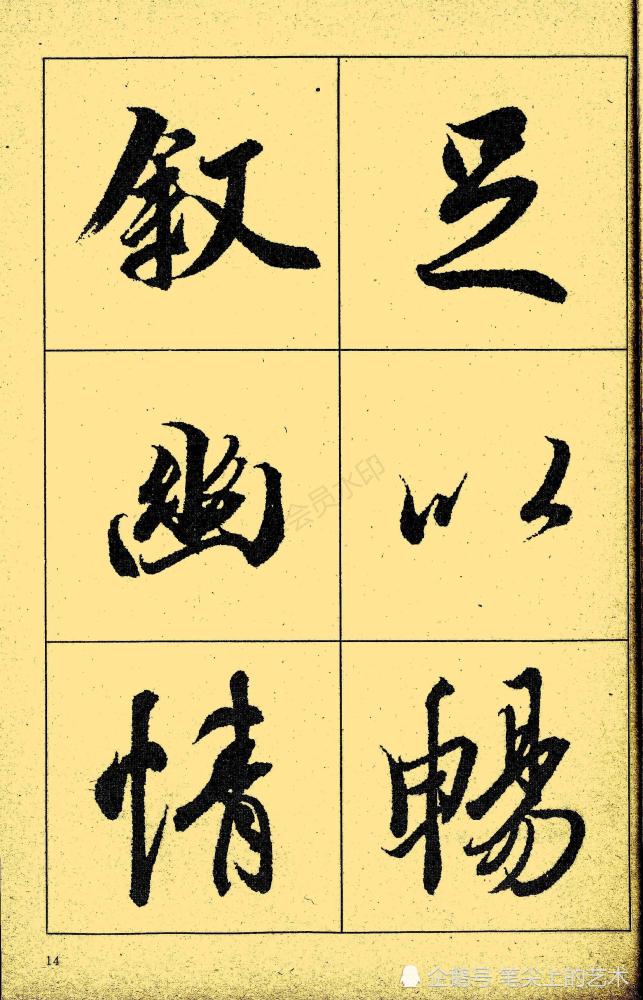 足以暢
叙幽情
会员水印
14
企鹅号 笔尖上的艺术